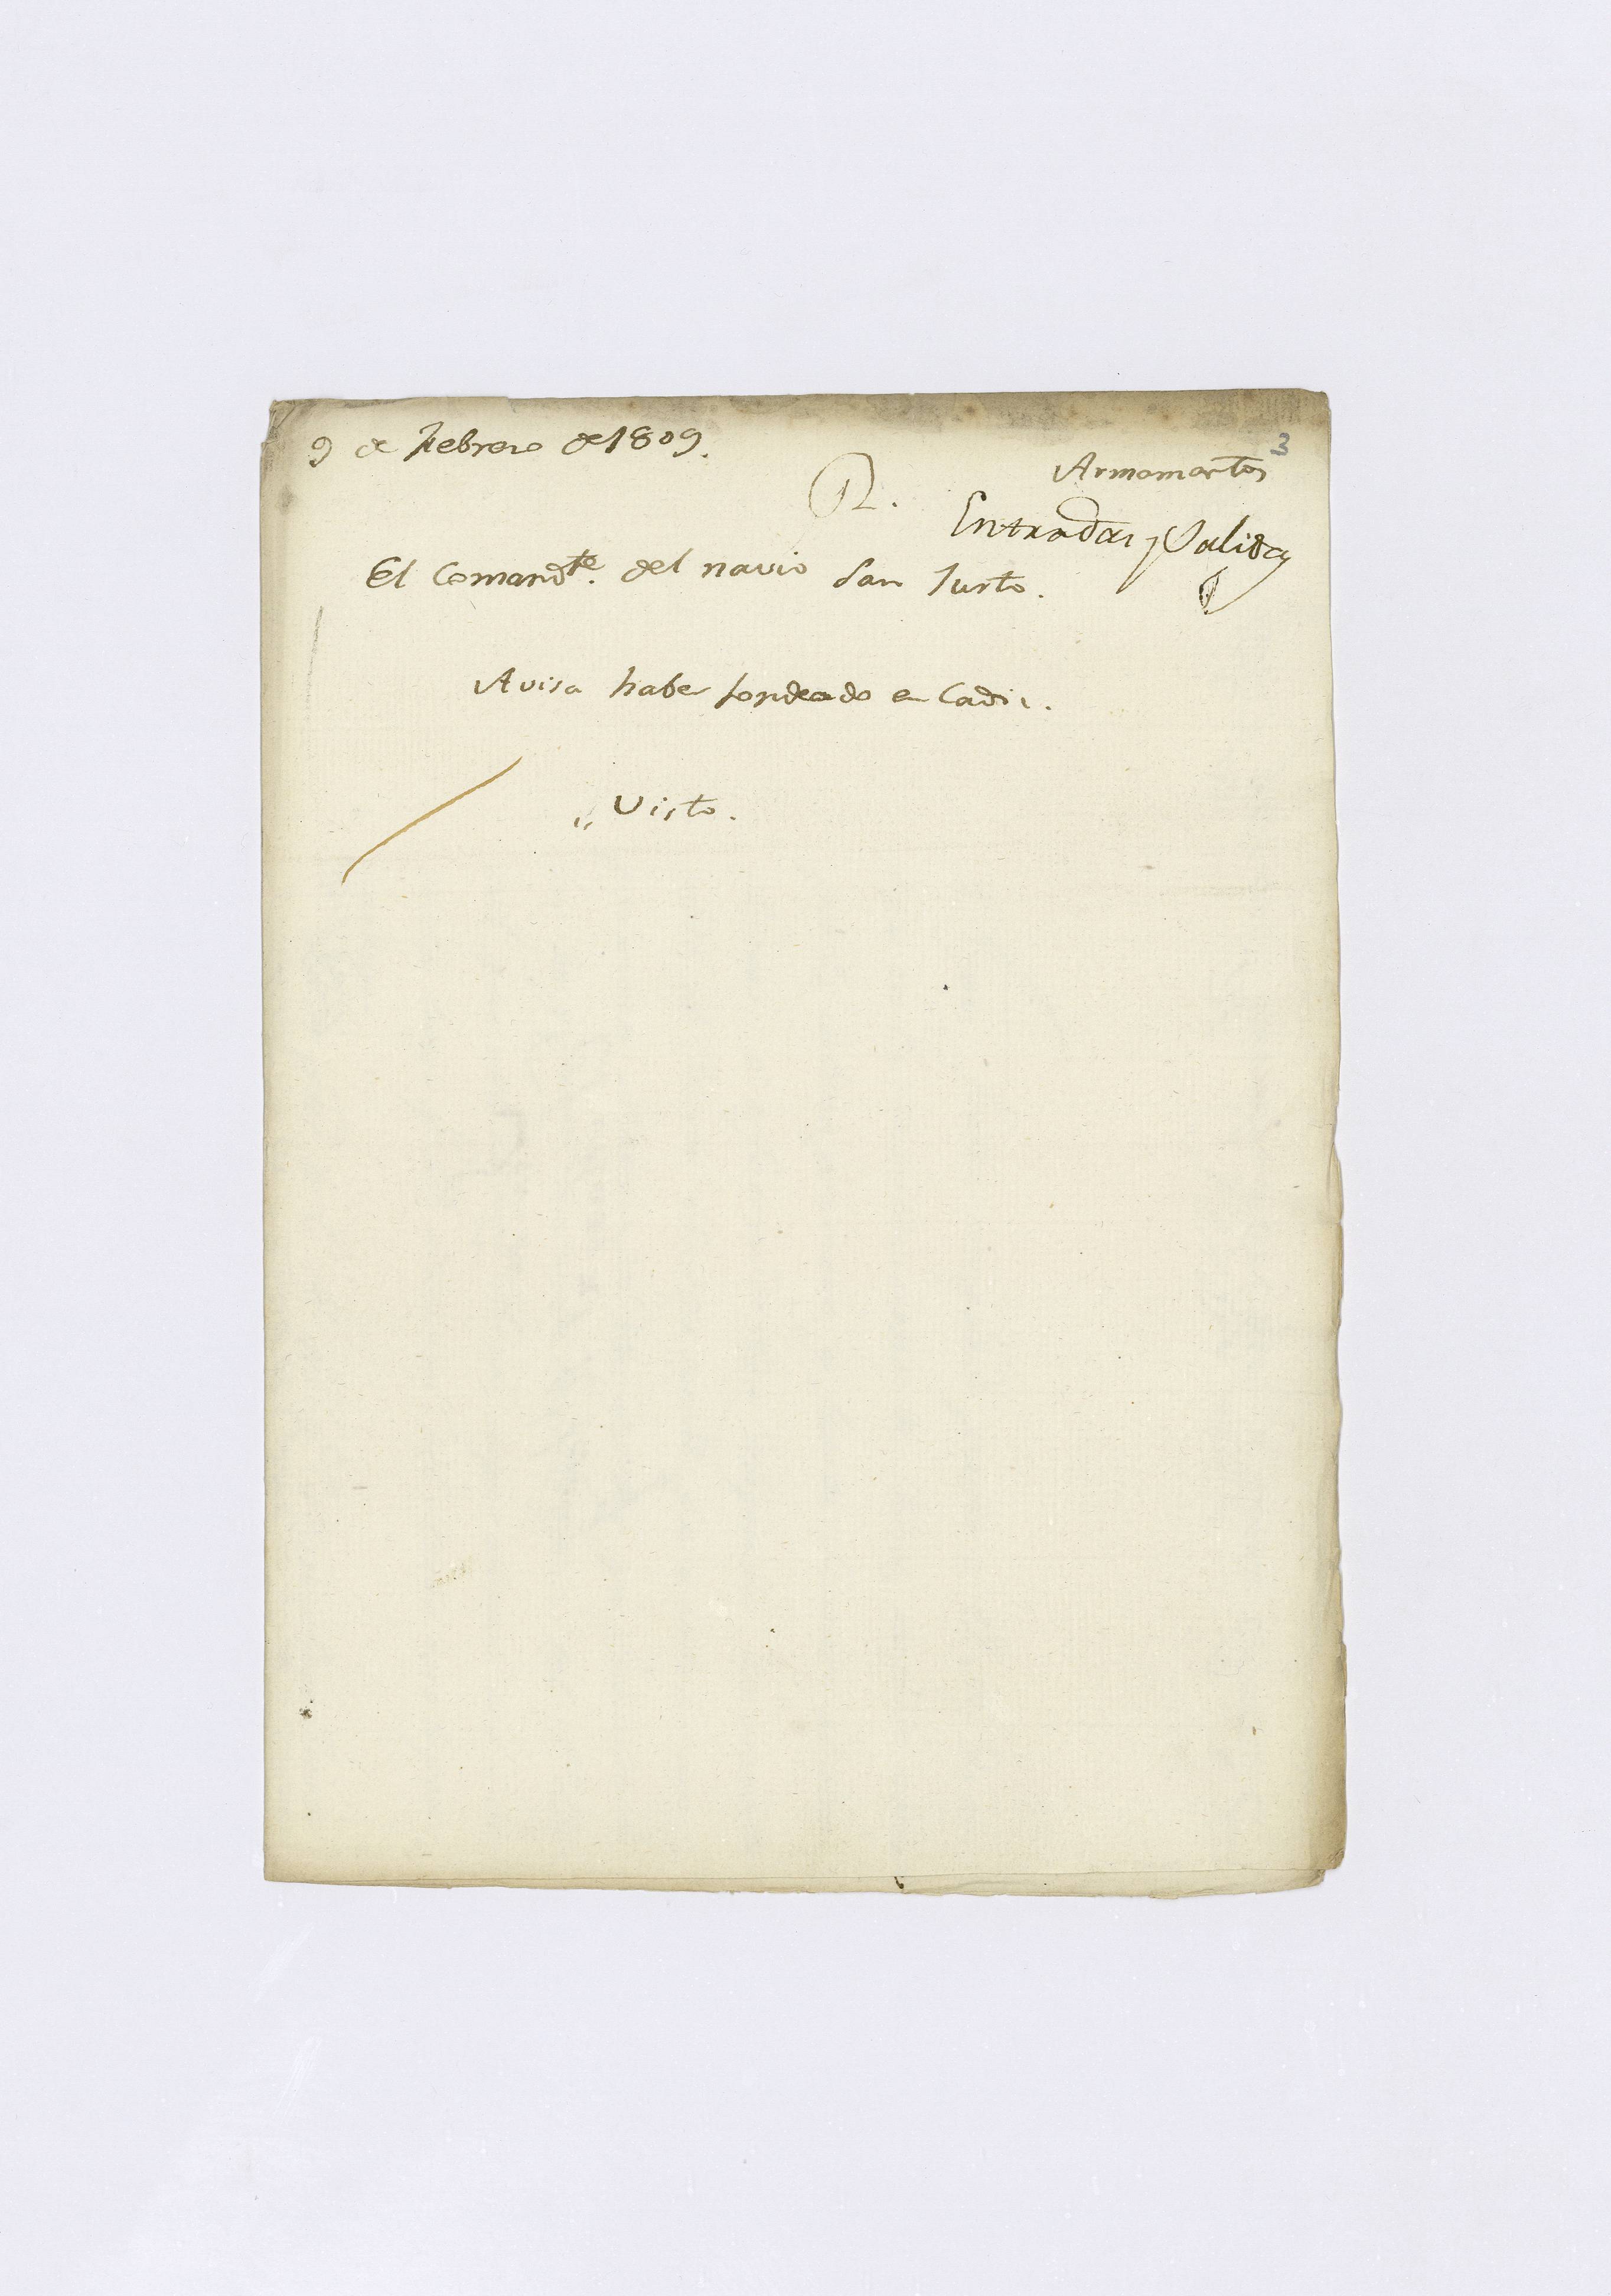 9 de Febrero de 1809.
3
Armamentos
R.
Entradas y Salidas
El Comandte. del navio San Justo.
Avisa haber fondeado en Cadiz.
"Visto.